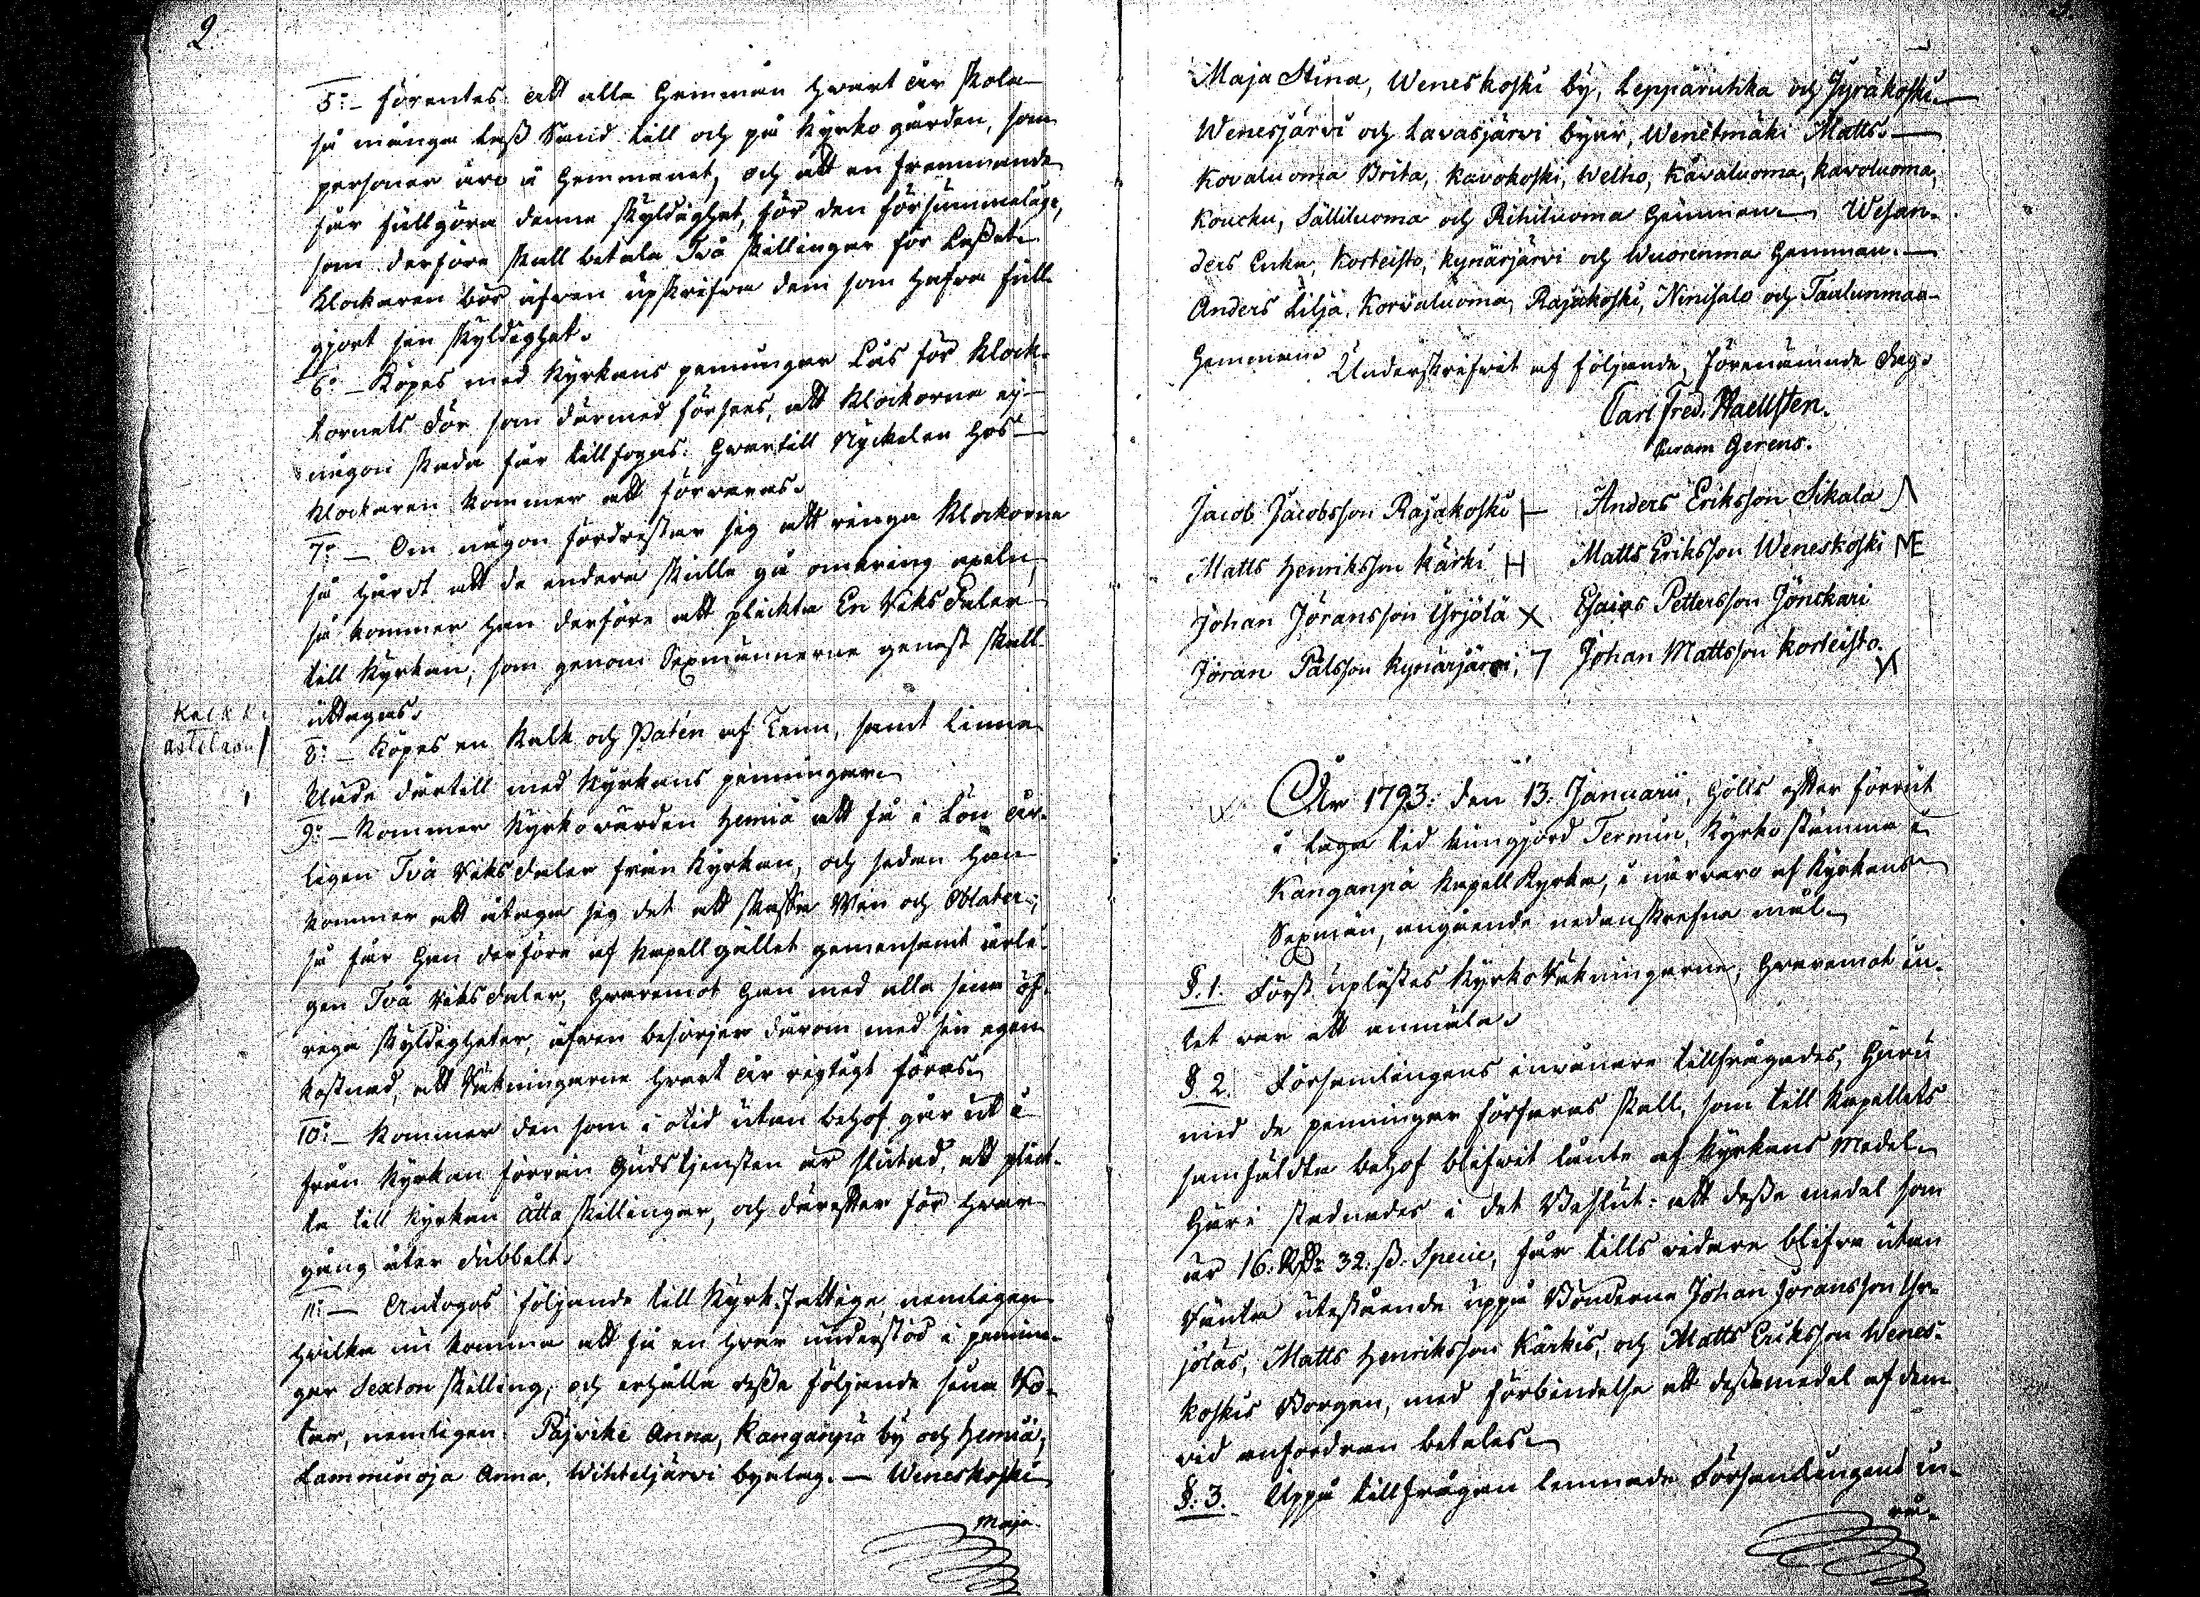 2
5:o – förentes att alla Hemman hwart år skola
så många lass Sand till och på Kyrkogården, som
personer äro å Hemmanet, och att en fremmande
får fullgöra denna skyldighet, för den försummelige,
som derföre skall betala Två skillingar för Lasset.
Klockaren bör äfwen upskrifwa dem som hafwa full-
gjort sin skyldighet.
6:o – Köpes med Kyrkans penningar Lås för Klock-
tornets dör som därmed förses, att Klockorna ej
någon skada får tillfogas. Hwartill Nyckelen hos
Klockaren kommer att förwaras.
7:o – Om någon fördristar sig att ringa Klockorna
så hårdt att de endera skulle gå omkring axeln,
så kommer han derföre att plickta En Riksdaler
till Kyrkan, som genom Sexmännerne genast skall
uttagas.
Kalkki
astelaun
8:o – Köpes en Kalk och Patén af Tenn, samt Linne
Kläde därtill med Kyrkans penningar.
9:o – Kommer Kyrkowärden Hemiä att få i Lön år-
ligen Två Riksdaler från Kyrkan, och sedan han
kommer att åtaga sig det att skaffa Win och Oblater,
så får han derföre af Kapellgället gemensamt årli-
gen Två Riksdaler, hwaremot han med alla sina öf-
riga skyldigheter, äfwen besörjer därom med sin egen
kostnad, att Räkningarne hwart år rigtigt föras.
10:o – Kommer den som i otid utan behof går ut i
från Kyrkan förrän Gudstjensten är slutad, att plick-
ta till Kyrkan åtta skillingar, och därefter för hwar
gång åter dubbelt.
11:o – Antogos följande till Kyrk.fattige, nemligen
hwilka nu komma att få en hwar understöd i pennin-
gar Sexton skilling, och erhålla desse följande sina Ro-
tar, nemligen: Päjwike Anna, Kanganpä by och Hemiä,
Lamminoja Anna, Wihteljärvi byalag. – Weneskoski
Maja
Maja Stina, Weneskoski by, Lepparutika och Jyräkoski
Wenesjärvi och Lavasjärvi byar, Wenetmäki Matts.
Kovaluoma Brita, Kavokoski, Welho, Käväluoma, Kavoluoma,
Kouchu, Sälliluoma och Rihiluoma Hemman. Wesan-
ders Enka, Korteisto, Kynäsjärvi och Wuorenma Hemman.
Anders Lilja, Korvaluoma, Rajakoski, Niniſalo och Taulunmaa
Hemman. Underskrifwit af följande, förenämnde dag.
Carl Fred. Haellsten.
Curam Gerens.
Jacob Jacobsson Rajakoski Anders Eriksson Sikala
Matts Henriksson Kärki H Matts Eriksson Weneskoski NE
Johan Jöransson Yrjölä X Esaias Pettersson Jönckari
Jöran Pålsson Kynäsjärvi, 7 Johan Mattsson Korteisto.
År 1793. den 13. Januarii, hölts efter förrut
i laga tid kungjord Termin, Kyrkostämma i
Kanganpä Kapell Kyrka, i närwaro af Kyrkans
Sexmän, angående nedanskrefna mål.
§. 1. Först uplästes Kyrko Räkningarne, hwaremot in-
tet war att anmäla.
§ 2. Församlingens inwånare tillfrågades, huru
med de penningar förfaras skall, som till Kapellets
samfäldta behof blifwit lånta af Kyrkans Medel.
Häri stadnades i det Beslut: att dessa medel som
är 16. Rdr 32. ß. Specie, får tills widare blifwa utan
Ränta utestående uppå Bönderne Johan Jöransson Yr-
jöläs, Matts Henriksson Kärkis, och Matts Eriksson Wenes-
koskis Borgen, med förbindelse att dessa medel af dem
wid anfordran betales.
§. 3. Uppå tillfrågan lemnade Församlingens in-
wå-